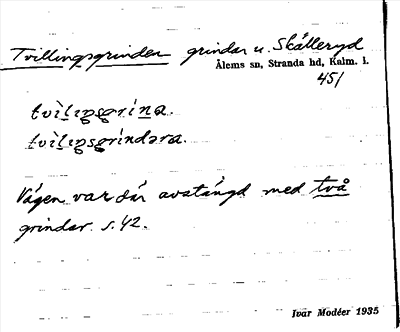 Tvillingsgrinden grindar u. Skälleryd
Ålems sn, Stranda hd, Kalm. l.
451
tvìliŋsgrína.
tvìliŋsgríndəra.
Vägen var där avstängd med två
grindar. s. 42.
Ivar Modéer 1935